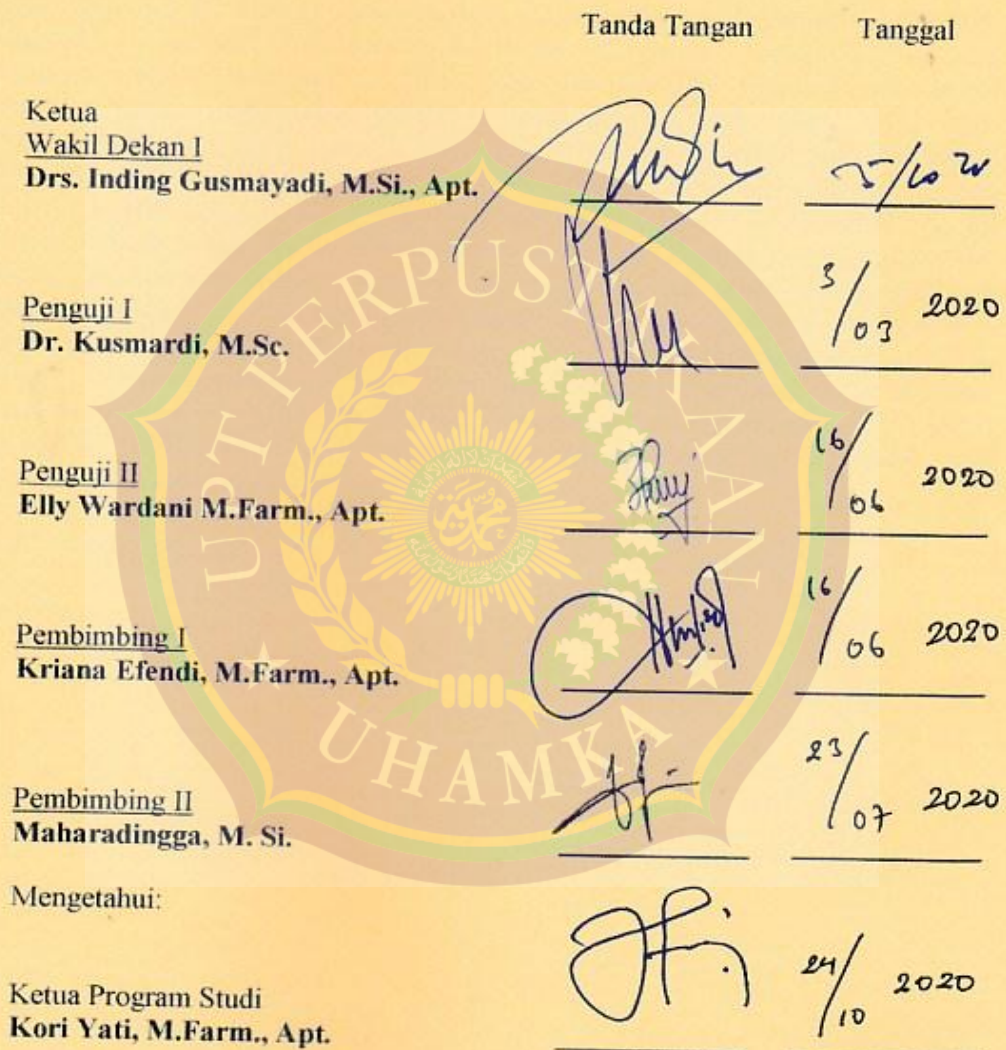 Tanda Tangan Tanggal
Ketua
Wakil Dekan I
Drs. Inding Gusmayadi, M.Si., Apt.
Penguji I
Dr. Kusmardi, M.Sc.
3/03 2020
Penguji II
Elly Wardani M.Farm., Apt.
16/06 2020
Pembimbing I
Kriana Efendi, M.Farm., Apt.
16/06 2020
Pembimbing II
Maharadingga, M. Si.
23/07 2020
Mengetahui:
Ketua Program Studi
Kori Yati, M.Farm., Apt.
24/10 2020
UPT PERPUSTAKAAN
UHAMKA